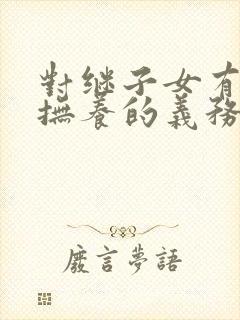 對继子女有
撫養的義務
廢言夢語